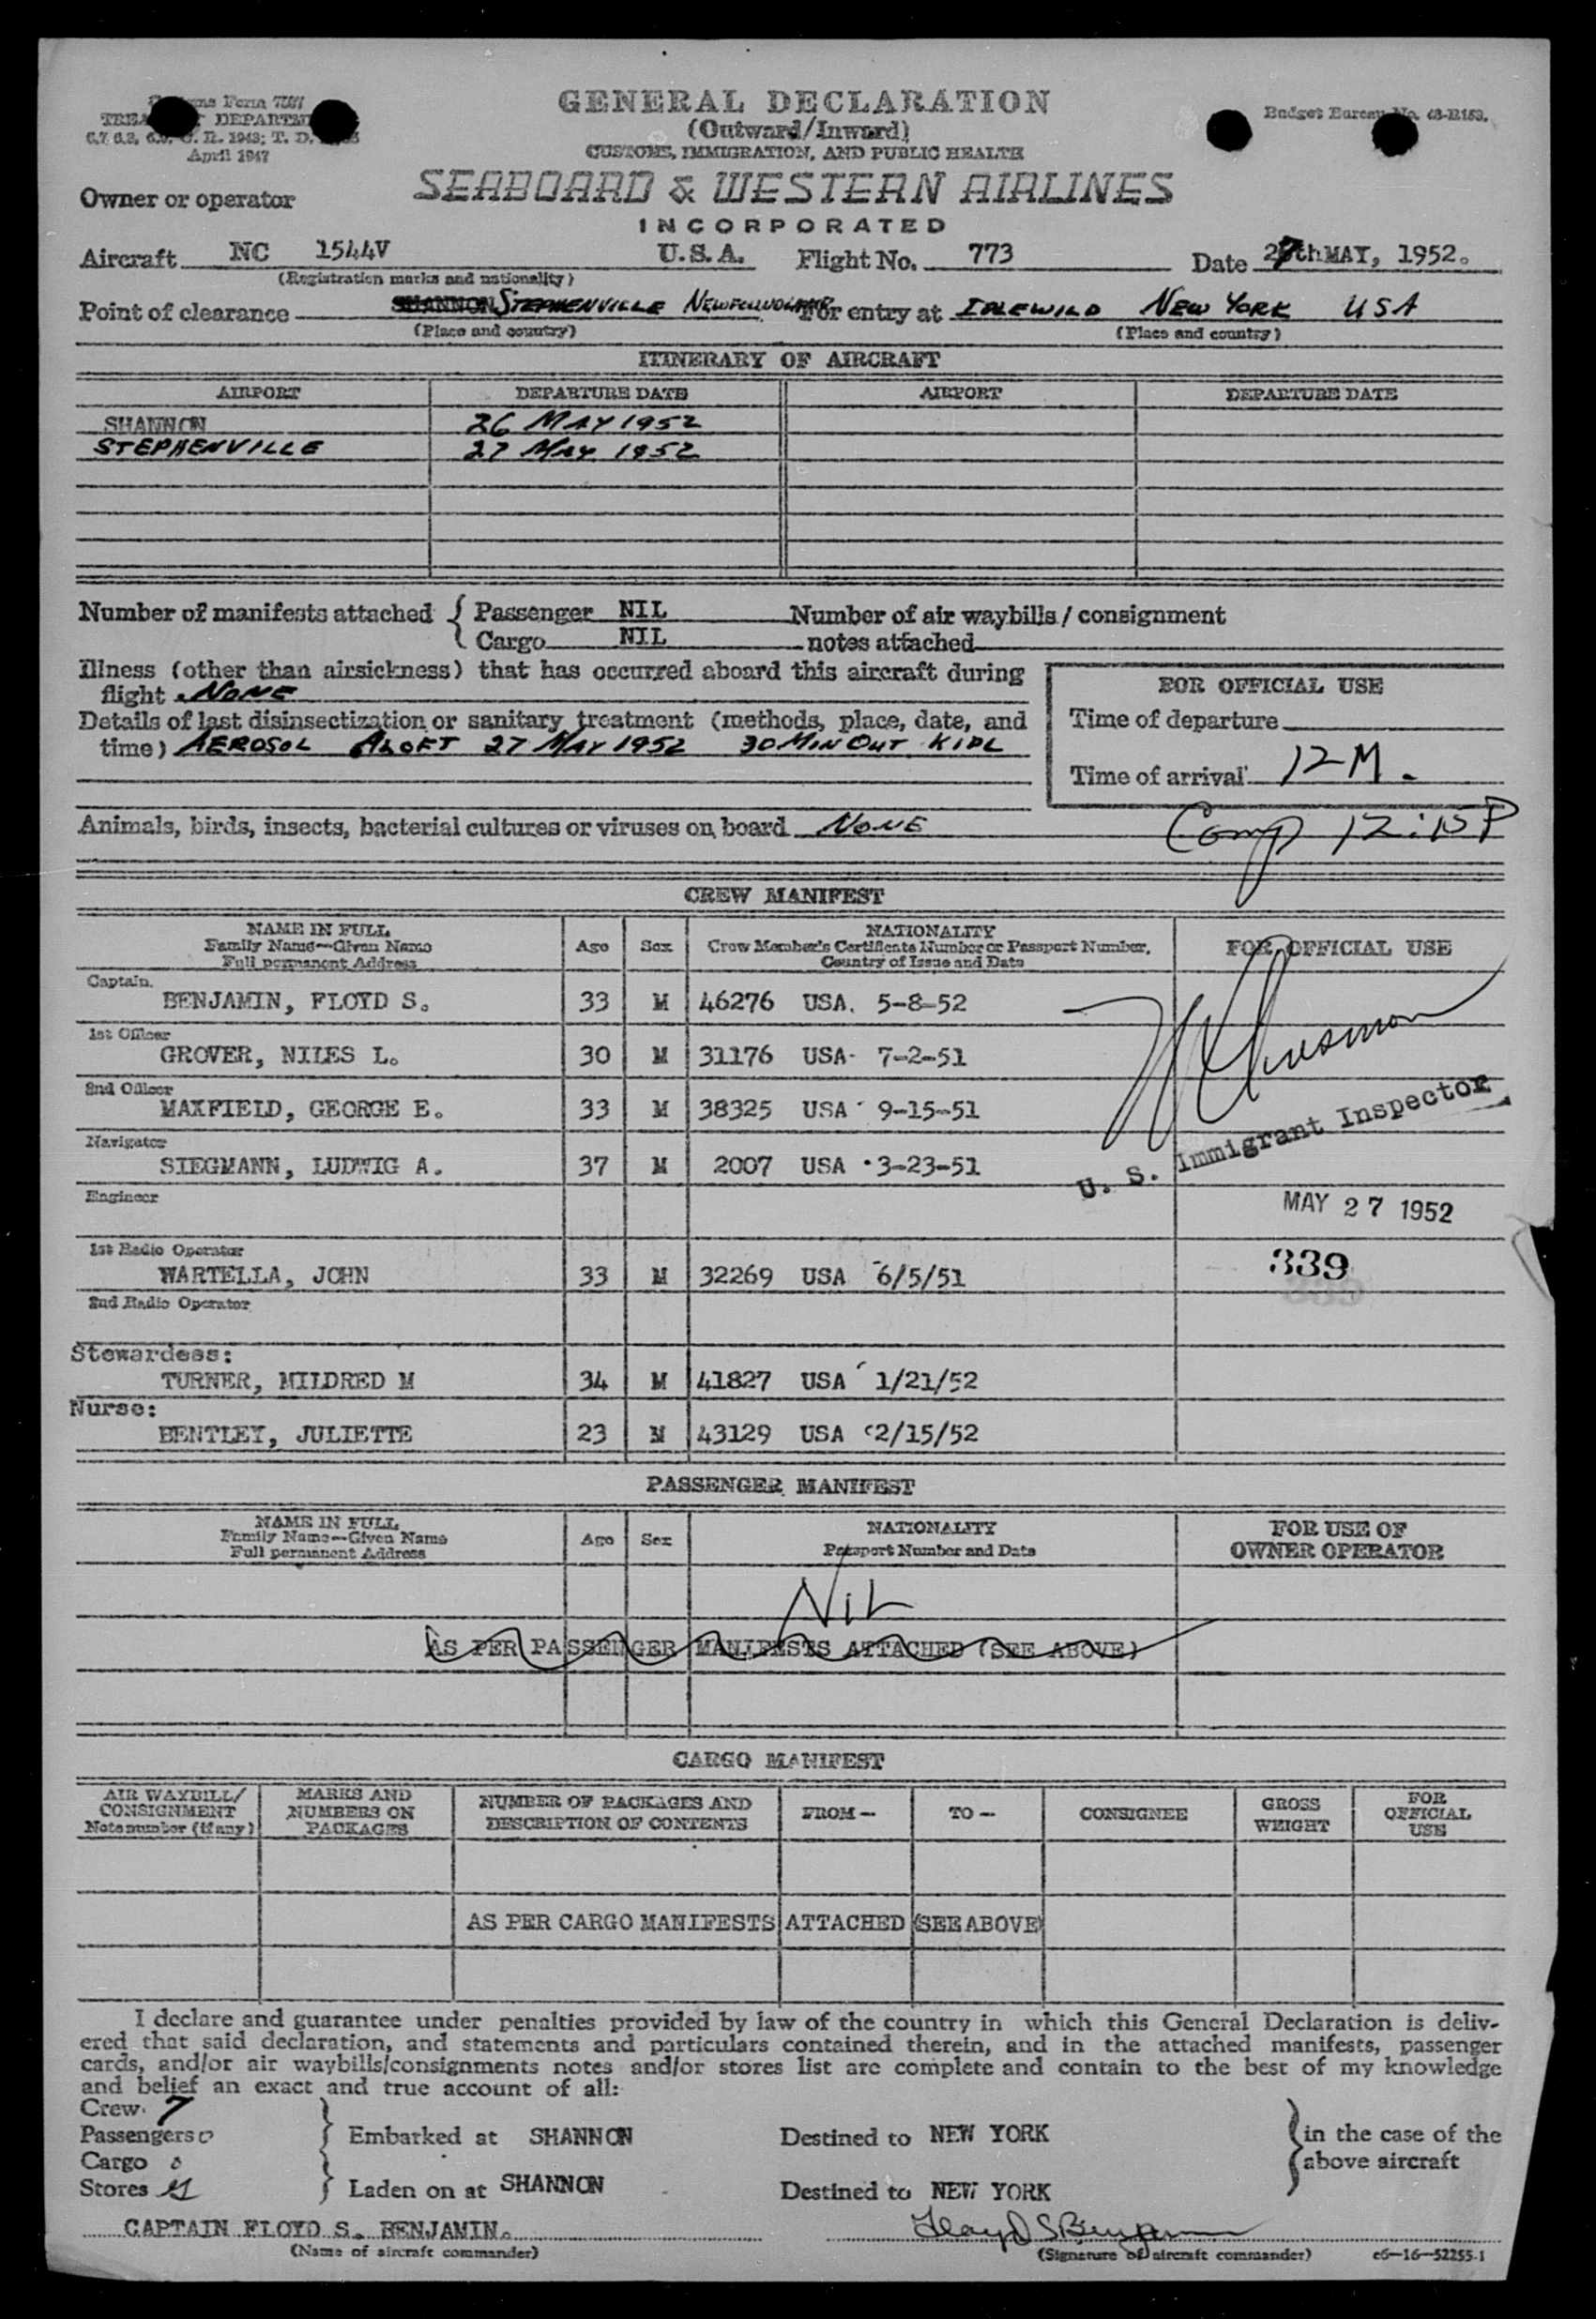 Customs Form 7507
TREASURY DEPARTMENT
6.7, 6.8, 6.9, C. R. 1943; T. D.
April 1947
GENERAL DECLARATION
(Outward/Inward)
CUSTOMS, IMMIGRATION, AND PUBLIC HEALTH
Budget Bureau No. 48-R153.
Owner or operator SEABOARD & WESTERN AIRLINES
INCORPORATED
Aircraft NC 1544V U.S.A. Flight No. 773 Date 27th MAY, 1952.
(Registration marks and nationality)
Point of clearance SHANNON STEPHENVILLE NEWFOUNDLAND For entry at IDLEWILD NEW YORK USA
(Place and country) (Place and country)
ITINERARY OF AIRCRAFT
AIRPORT DEPARTURE DATE AIRPORT DEPARTURE DATE
SHANNON 26 MAY 1952
STEPHENVILLE 27 MAY 1952
Number of manifests attached { Passenger NIL Number of air waybills / consignment
Cargo NIL notes attached
Illness (other than airsickness) that has occurred aboard this aircraft during
flight. NONE
Details of last disinsectization or sanitary treatment (methods, place, date, and
time) AEROSOL ALOFT 27 MAY 1952 30 MIN OUT KIDL
FOR OFFICIAL USE
Time of departure
Time of arrival 12 M.
Animals, birds, insects, bacterial cultures or viruses on board NONE
Comp 12:15 P
CREW MANIFEST
NAME IN FULL
Family Name—Given Name
Full permanent Address
Age Sex
NATIONALITY
Crew Member's Certificate Number or Passport Number,
Country of Issue and Date
FOR OFFICIAL USE
Captain.
BENJAMIN, FLOYD S. 33 M 46276 USA. 5-8-52
1st Officer
GROVER, NILES L. 30 M 31176 USA- 7-2-51
2nd Officer
MAXFIELD, GEORGE E. 33 M 38325 USA 9-15-51
Navigator
SIEGMANN, LUDWIG A. 37 M 2007 USA 3-23-51
U. S. Immigrant Inspector
Engineer
MAY 27 1952
1st Radio Operator
WARTELLA, JOHN 33 M 32269 USA 6/5/51
339
2nd Radio Operator
Stewardess:
TURNER, MILDRED M 34 M 41827 USA 1/21/52
Nurse:
BENTLEY, JULIETTE 23 M 43129 USA 2/15/52
PASSENGER MANIFEST
NAME IN FULL
Family Name—Given Name
Full permanent Address
Age Sex
NATIONALITY
Passport Number and Date
FOR USE OF
OWNER OPERATOR
NIL
AS PER PASSENGER MANIFESTS ATTACHED (SEE ABOVE)
CARGO MANIFEST
AIR WAYBILL/
CONSIGNMENT
Note number (if any)
MARKS AND
NUMBERS ON
PACKAGES
NUMBER OF PACKAGES AND
DESCRIPTION OF CONTENTS
FROM—
TO—
CONSIGNEE
GROSS
WEIGHT
FOR
OFFICIAL
USE
AS PER CARGO MANIFESTS ATTACHED (SEE ABOVE)
I declare and guarantee under penalties provided by law of the country in which this General Declaration is deliv-
ered that said declaration, and statements and particulars contained therein, and in the attached manifests, passenger
cards, and/or air waybills/consignments notes and/or stores list are complete and contain to the best of my knowledge
and belief an exact and true account of all:
Crew 7
Passengers 0 Embarked at SHANNON Destined to NEW YORK in the case of the
Cargo 0 above aircraft
Stores Laden on at SHANNON Destined to NEW YORK
CAPTAIN FLOYD S. BENJAMIN. Floyd S Benjamin
(Name of aircraft commander) (Signature of aircraft commander) c6—16—52255-1